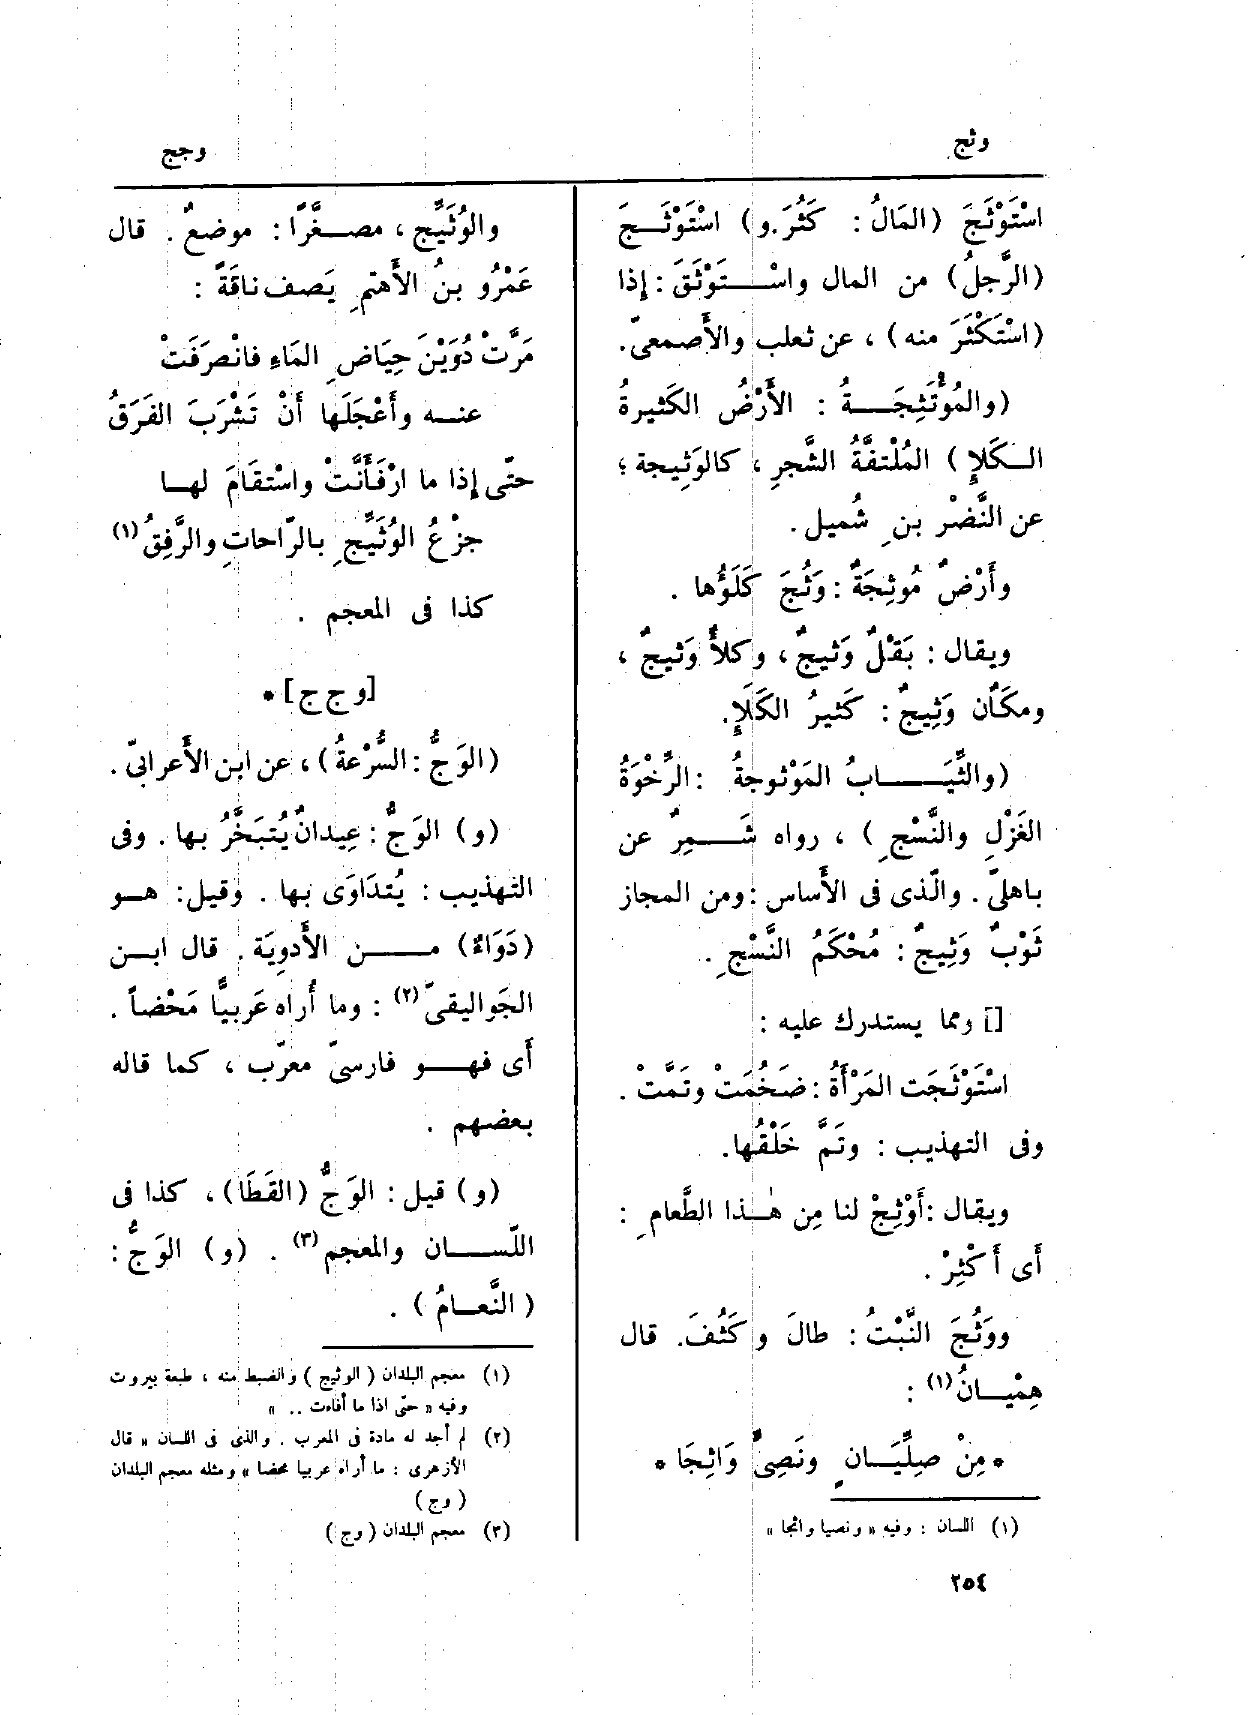 وثج
وجج
اسْتَوْثَجَ (المَالُ : كَثُرَ.و) اسْتَوْثَــجَ
(الرَّجلُ) من المال واسْــتَوْثَقَ : إذا
(اسْتَكْثَرَ منه) ، عن ثعلب والأَصمعىّ.
(والمُؤْتَثِجَــةُ : الأَرْضُ الكَثيرةُ
الــكَلإِ) المُلْتفَّةُ الشَّجرِ ، كالوَثِيجة ؛
عن النَّضْر بنِ شُميل .
وأَرْضٌ مُوثِجَةٌ : وَثُجَ كَلَؤُها .
ويقال : بَقْلٌ وَثيجٌ ، وكلأٌ وَثيجٌ ،
ومكَان وَثِيجٌ : كَثيرُ الكَلَإِ.
(والثِّيَــابُ المَوْثوجةُ : الرِّخْوَةُ
الغَزْلِ والنَّسْجِ ) ، رواه شَــمِرٌ عن
باهلىّ . والّذى فى الأَساس : ومن المجاز
ثَوْبٌ وَثِيجٌ : مُحْكَمُ النَّسْجِ .
[] ومما يستدرك عليه :
اسْتَوْثَجَت المَرْأَةُ : ضَخُمَتْ وتَمَّتْ .
وفى التهذيب : وتَمَّ خَلْقُها.
ويقال : أَوْثِجْ لنا مِن هٰــذا الطَّعامِ :
أَى أَكْثِرْ .
ووَثُجَ النَّبْتُ : طالَ وكَثُفَ. قال
هِمْيــانُ(١) :
* مِنْ صِلِّيَــانٍ ونَصِىٍّ وَاثِجَا *
(١) اللسان : وفيه « ونصيا واثجا »
والوُثَيِّج ، مصــغَّرًا : موضعٌ . قال
عَمْرُو بنُ الأَهتمِ يَصف ناقَةً :
مَرَّتْ دُوَيْنَ حِيَاضِ المَاءِ فانْصرَفَتْ
عنــه وأَعْجَلَها أَنْ تَشْرَبَ الفَرَقُ
حتّى إذا ما ارْفَأَنَّتْ واسْتقَامَ لهــا
جزْعُ الوُثَيِّجِ بالرّاحاتِ والرَّفِقُ(١)
كذا فى المعجم .
[و ج ج] *
(الوَجُّ : السُّرْعةُ) ، عن ابن الأَعرابىّ .
(و) الوَجُّ : عِيدانٌ يُتبَخَّرُ بها . وفى
التهذيب : يُتدَاوَى بها . وقيل : هــو
(دَوَاءٌ) مــن الأَدوِيَة . قال ابــن
الجَواليقىّ(٢) : وما أُراه عَربيًّا مَحْضاً .
أَى فهــو فارسىّ معرّب ، كما قاله
بعضهم .
(و) قيل : الوَجُّ (القَطَا) ، كذا فى
اللّســان والمعجم(٣) . (و) الوَجُّ :
(النَّعــامُ ) .
(١) معجم البلدان ( الوثيج ) والضبط منه ، طبعة بيروت
وفيه « حتّى اذا ما أفاءت .. »
(٢) لم أجد له مادة فى المعرب . والذى فى اللسان « قال
الأزهرى : ما أراه عربيا محضا » ومثله معجم البلدان
( وج )
(٣) معجم البلدان ( وج )
٢٥٤